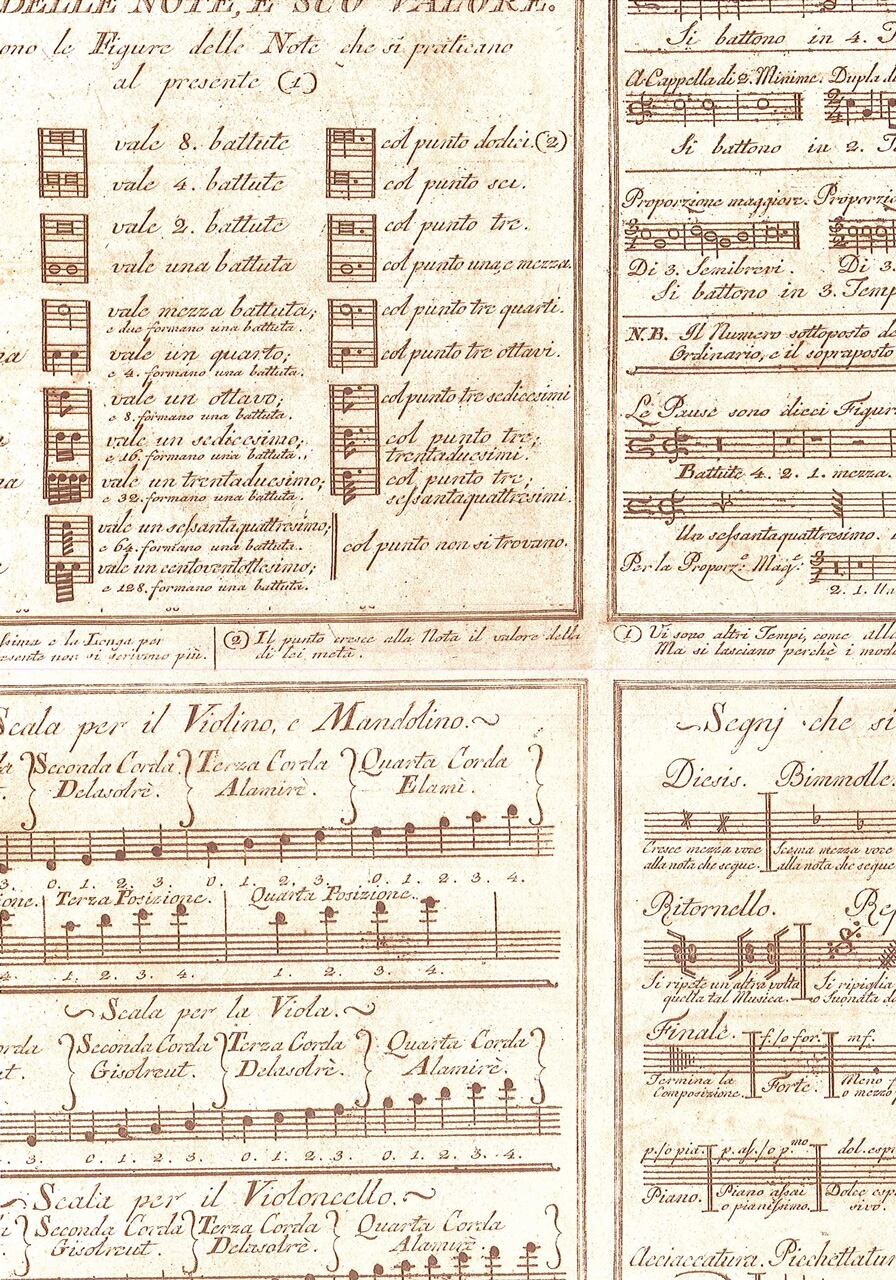 DELLE NOTE, E SUO VALORE.
ono le Figure delle Note che si praticano
al presente (1)
vale 8. battute
col punto dodici. (2)
vale 4. battute
col punto sei.
vale 2. battute
col punto tre.
vale una battuta
col punto una, e mezza.
vale mezza battuta;
e due formano una battuta.
col punto tre quarti.
vale un quarto;
e 4. formano una battuta.
col punto tre ottavi.
vale un ottavo;
e 8. formano una battuta.
col punto tre sedicesimi
vale un sedicesimo;
e 16. formano una battuta.
col punto tre;
trentaduesimi.
vale un trentaduesimo;
e 32. formano una battuta.
col punto tre;
sessantaquattresimi.
vale un sessantaquattresimo;
e 64. formano una battuta.
col punto non si trovano.
vale un centoventottesimo;
e 128. formano una battuta.
ssima e la Longa per
esente non si scrivono più.
(2) Il punto cresce alla Nota il valore della
di lei metà.
Si battono in 4. T
A Cappella di 2. Minime. Dupla di
2/4
Si battono in 2. T
Proporzione maggiore. Proporzio
3/1
3/2
Di 3. Semibrevi. Di 3.
Si battono in 3. Temp
N.B. Il Numero sottoposto de
Ordinario, e il sopraposto
Le Pause sono dieci Figur
Battute 4. 2. 1. mezza.
Un sessantaquattresimo.
Per la Proporz.e Mag.e
3/1
2. 1. Un
(1) Vi sono altri Tempi, come alla
Ma si lasciano perchè i mod
Scala per il Violino, e Mandolino.
da Seconda Corda Terza Corda Quarta Corda
t. Delasolrè. Alamirè. Elamì.
3. 0. 1. 2. 3. 0. 1. 2. 3. 0. 1. 2. 3. 4.
ione. Terza Posizione. Quarta Posizione.
4. 1. 2. 3. 4. 1. 2. 3. 4.
Scala per la Viola.
orda Seconda Corda Terza Corda Quarta Corda
ut. Gisolreut. Delasolrè. Alamirè.
3. 0. 1. 2. 3. 0. 1. 2. 3. 0. 1. 2. 3. 4.
Scala per il Violoncello.
Seconda Corda Terza Corda Quarta Corda
Gisolreut. Delasolrè. Alamirè.
Segnj che si
Diesis. Bimmolle.
Cresce mezza voce
alla nota che segue.
Scema mezza voce
alla nota che segue
Ritornello. Rep
Si ripete un'altra volta
quella tal Musica.
Si ripiglia
o Suonata da
Finale. f. / o for. mf.
Termina la
Composizione.
Forte.
Meno f
o mezzo
p. / o pia. p. as. / o p.mo dol. espr
Piano.
Piano assai
o pianissimo.
Dolce esp
sivo.
Acciaccatura. Picchettatur